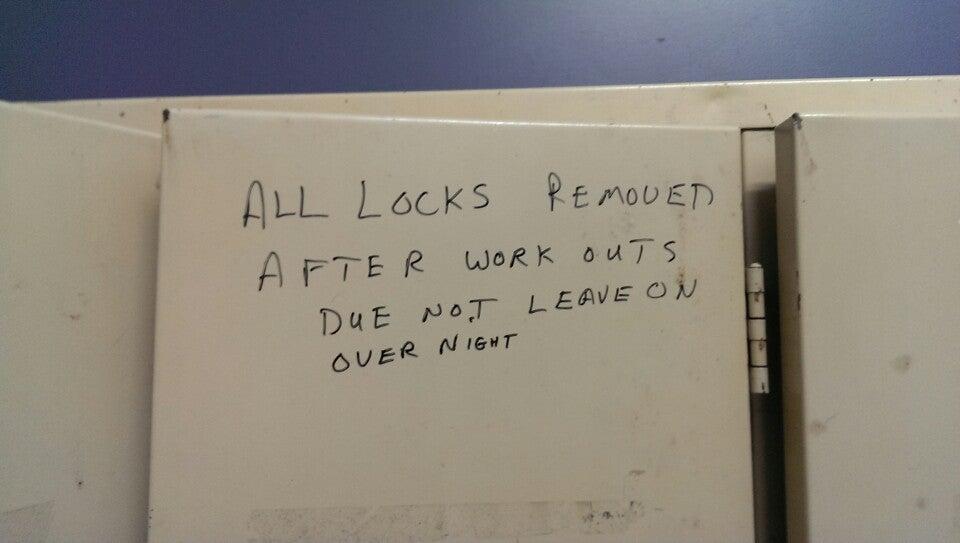 ALL LOCKS REMOVED
AFTER WORK OUTS
DUE NOT LEAVE ON
OVER NIGHT